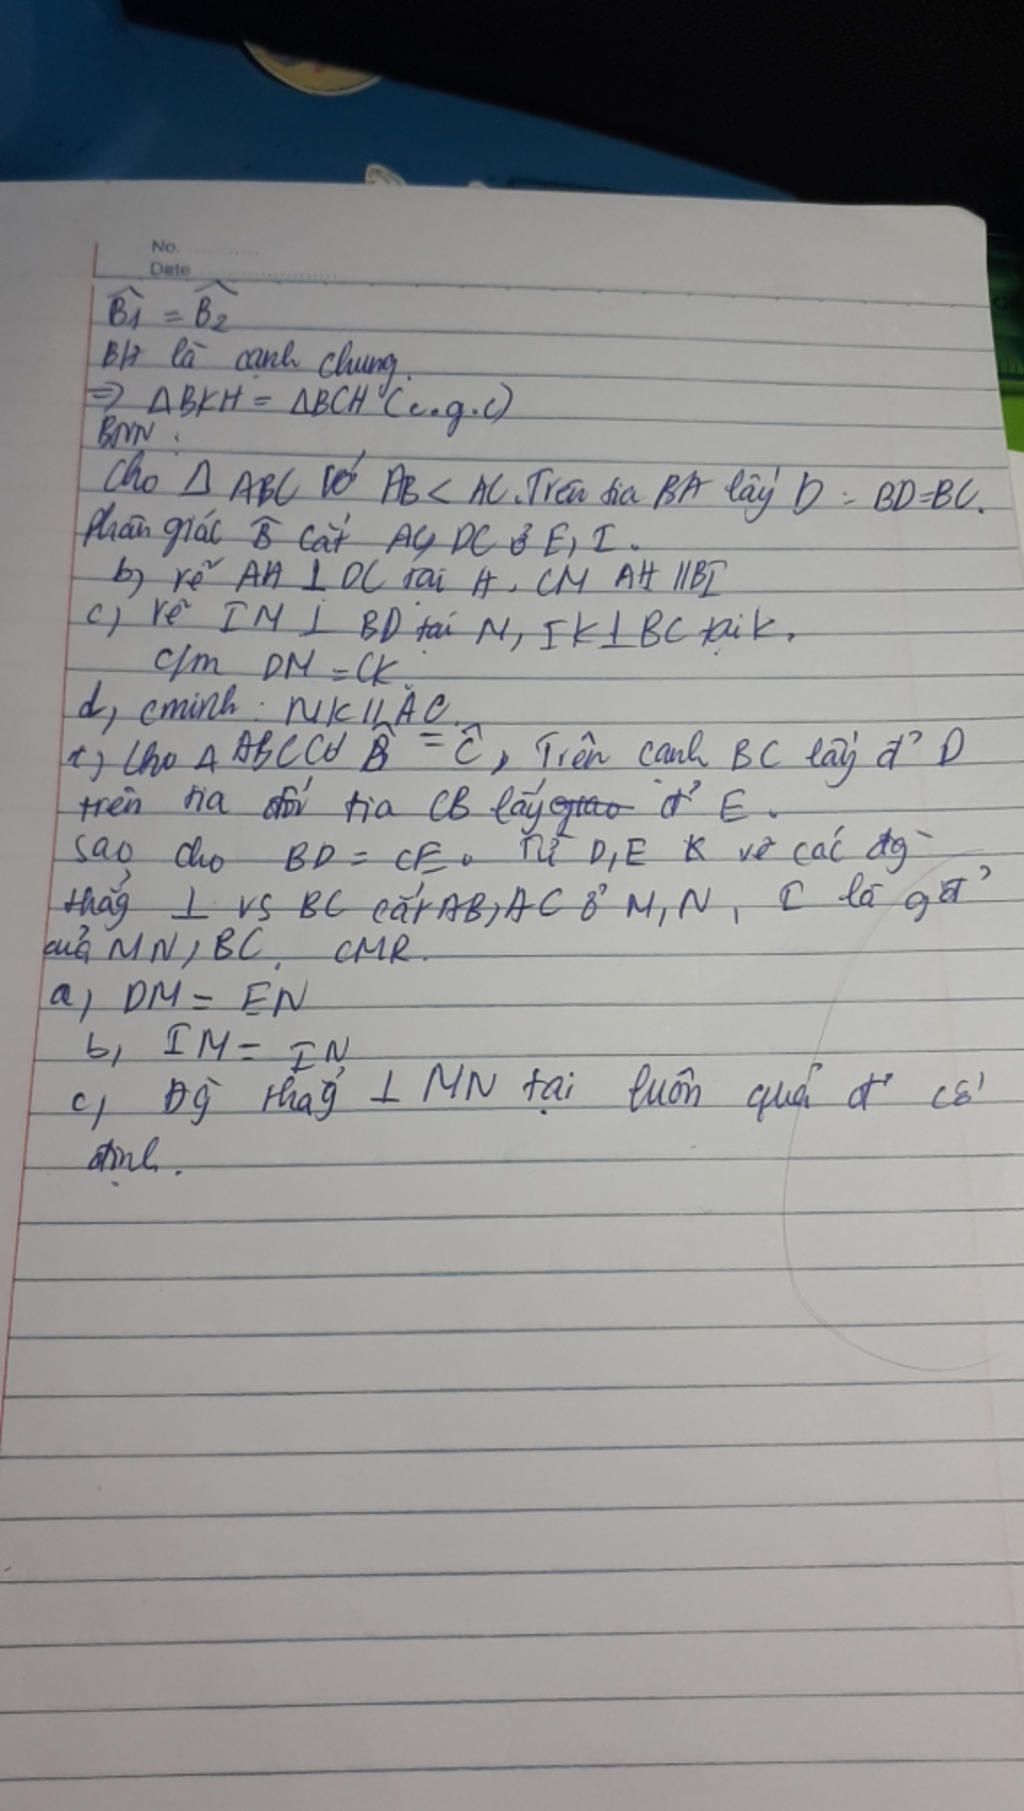 No. ...........
Date .....................
B̂1 = B̂2
BH là cạnh chung.
=> ΔBKH = ΔBCH (c.g.c)
BNN:
Cho Δ ABC với AB < AC. Trên tia BA lấy D : BD=BC.
Phân giác B̂ cắt AC, DC ở E, I.
b, vẽ AH ⊥ DC tại H. CM AH // BI
c, vẽ IM ⊥ BD tại M, IK ⊥ BC tại K.
c/m DM = CK
d, cminh: MK // AC
Cho Δ ABC Có B̂ = Ĉ, Trên cạnh BC lấy đ' D
trên tia đối tia CB lấy đ' E.
sao cho BD = CE. Từ D, E kẻ vẽ các đg
thẳg ⊥ vs BC cắt AB, AC ở M, N, I là gđ'
của MN, BC. CMR.
a, DM = EN
b, IM = IN
c, Đg thẳg ⊥ MN tại luôn qua đ' cố
định.